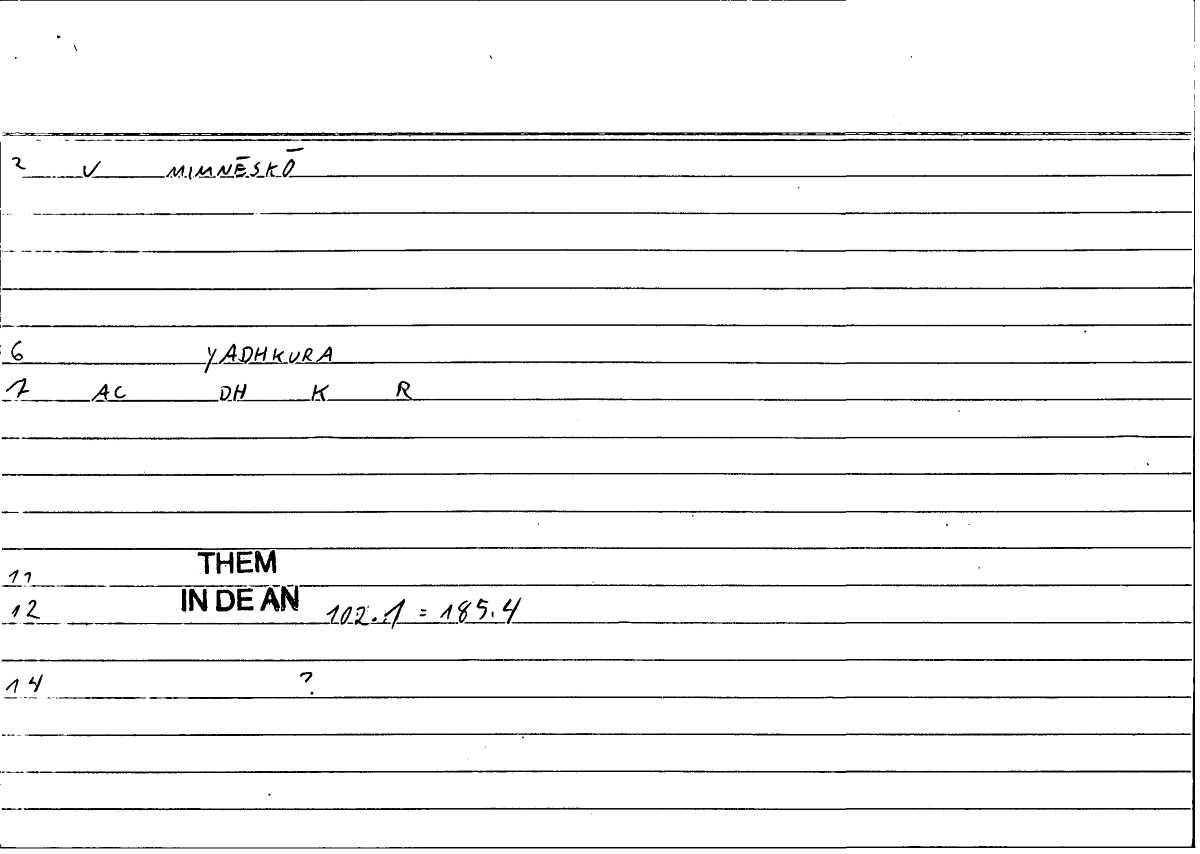 2 V MIMNĒSKŌ
6 YADHKURA
7 AC DH K R
11 THEM
12 IN DE AN 102.1 = 185.4
14 ?